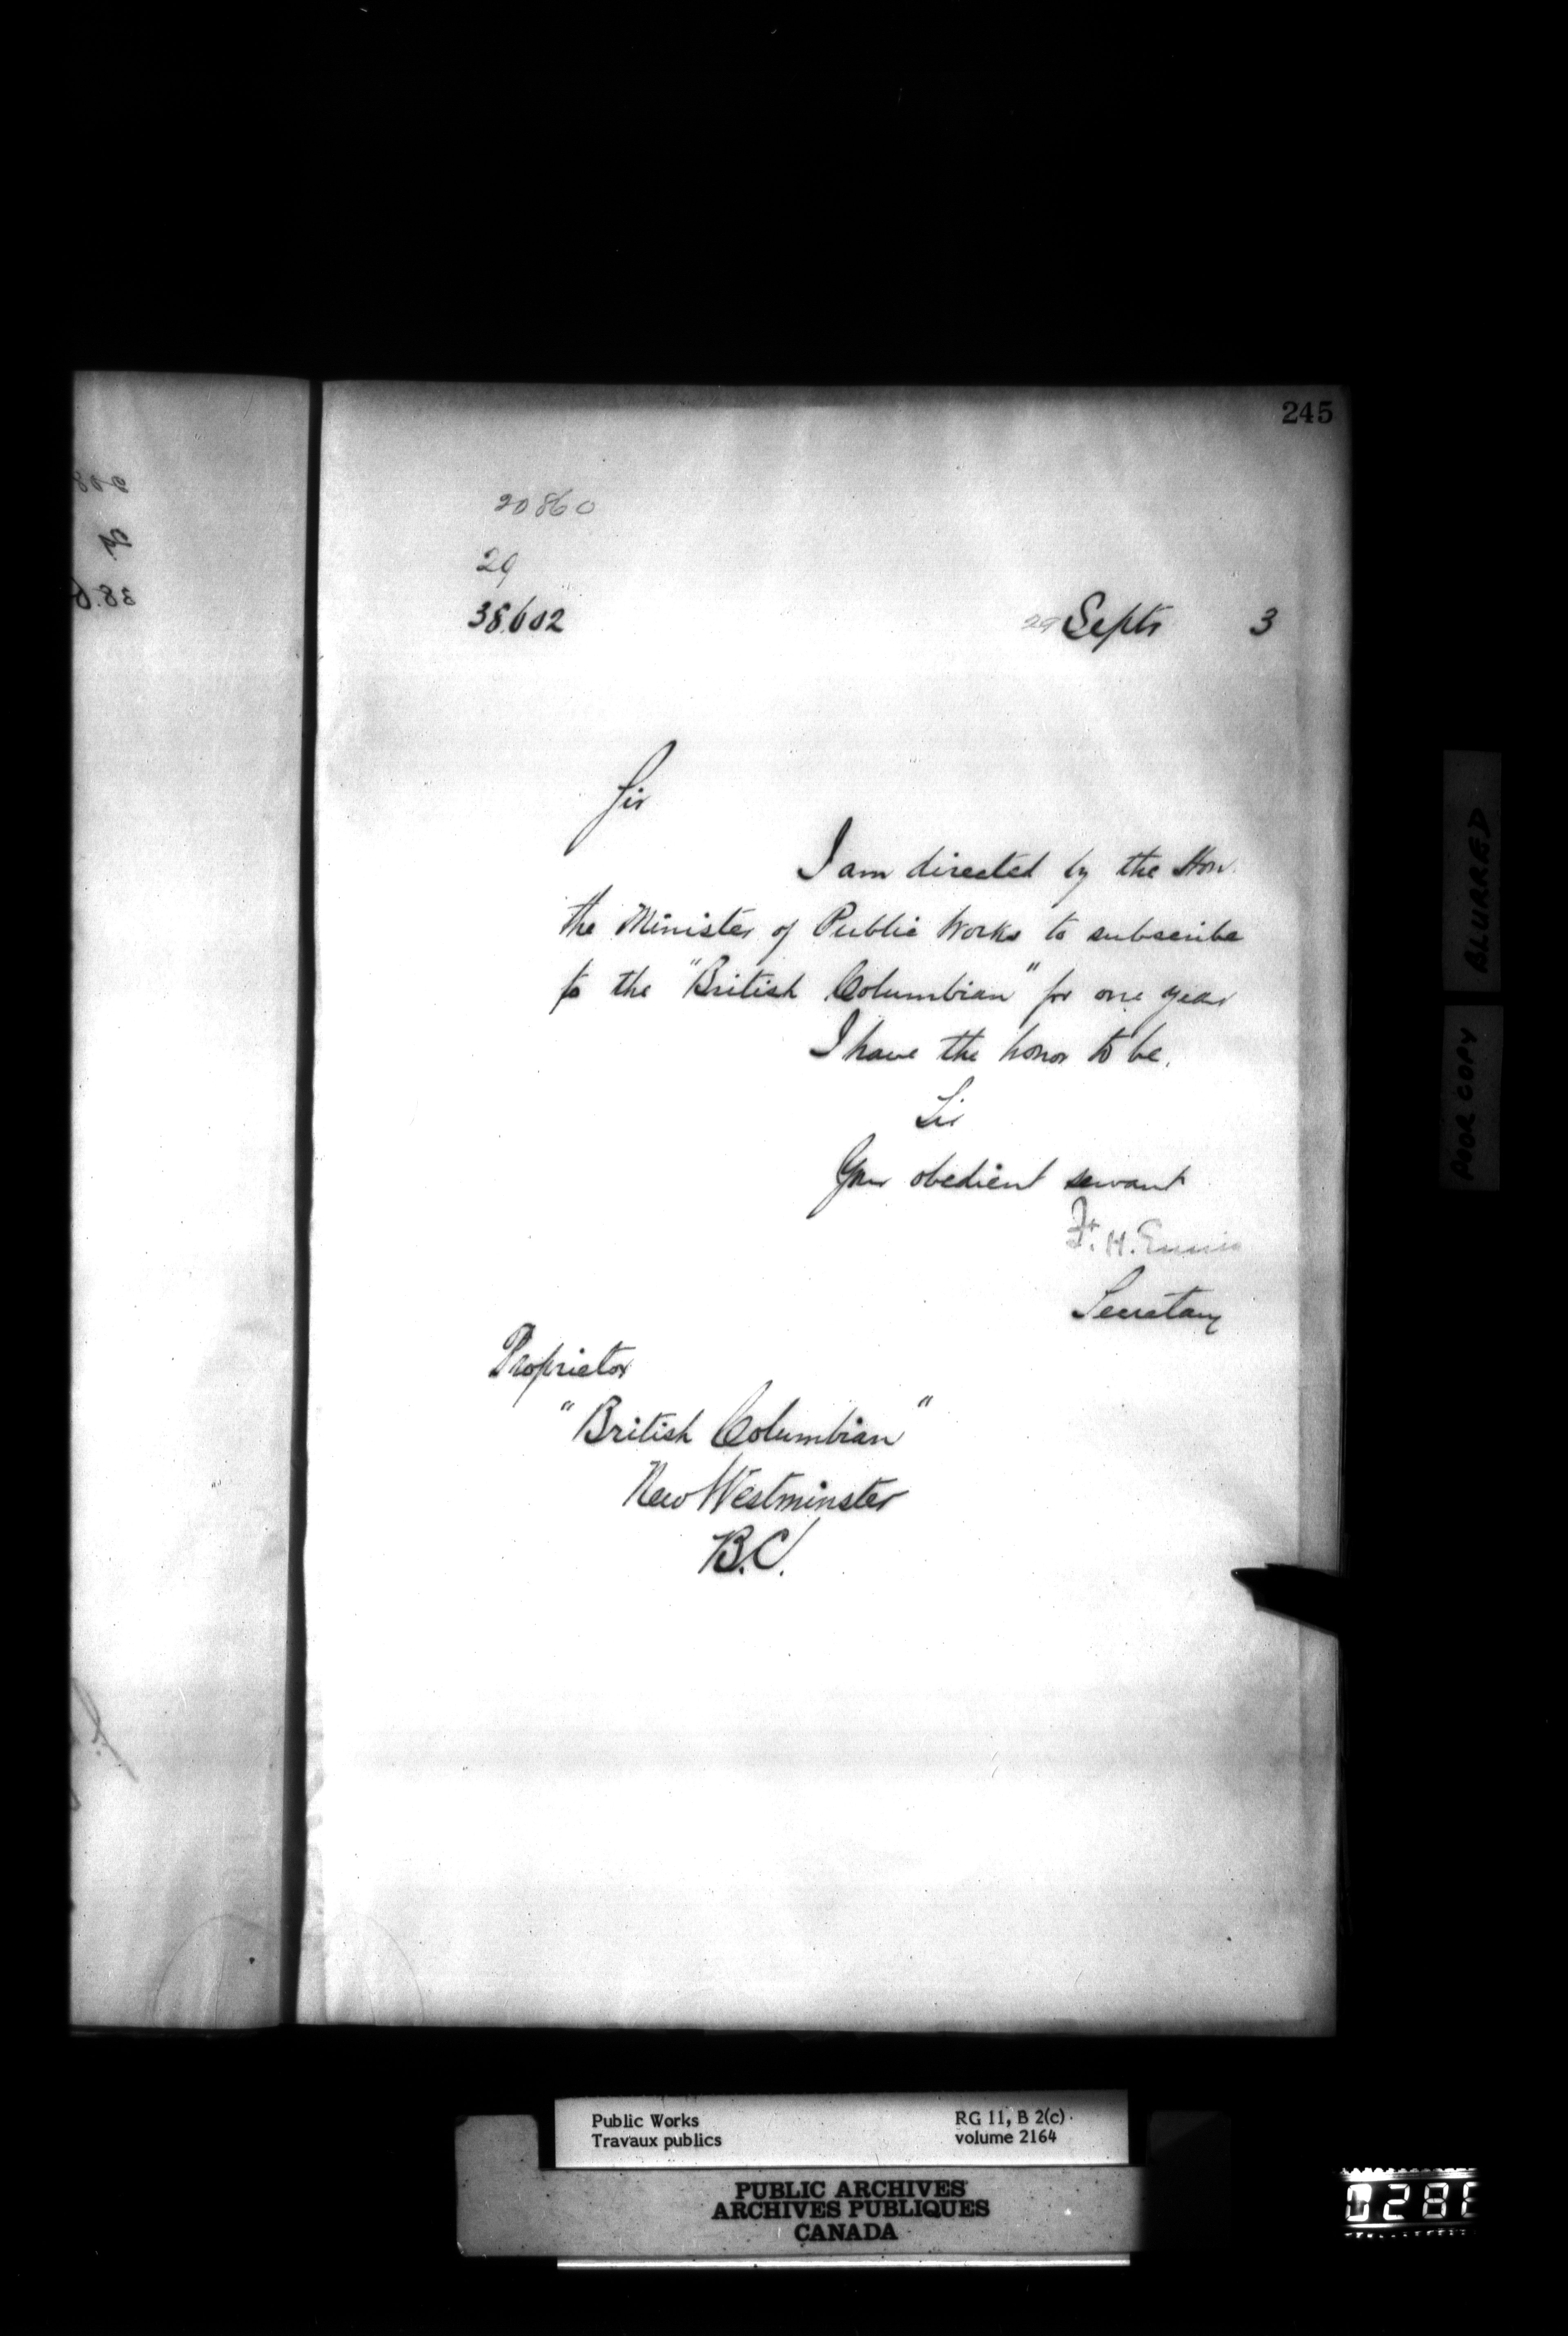 245
20860
29
38602
29 Septr 3
Sir
I am directed by the Hon.
the Minister of Public Works to subscribe
to the "British Columbian" for one year
I have the honor to be,
Sir
Your obedient servant
F. H. Ennis
Secretary
Proprietor
"British Columbian"
New Westminster
B.C.
BLURRED
POOR COPY
Public Works
Travaux publics
RG 11, B 2(c)
volume 2164
PUBLIC ARCHIVES
ARCHIVES PUBLIQUES
CANADA